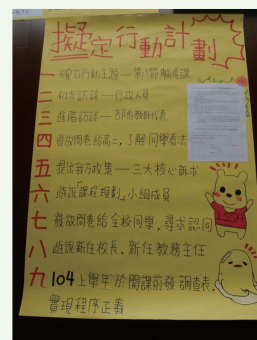 擬定行動計劃
一 確立行動主題—第八節輔導課
二 初步訪談—行政人員
三 進階訪談—部份教師代表
四 發放問卷給高二,了解同學看法
五 提出我方政策—三大核心訴求
六 遊說「課程規劃」小組成員
七 發放問卷給全校同學,尋求認同
八 遊說新任校長、新任教務主任
九 104上學年於開課前發調查表,
實現程序正義